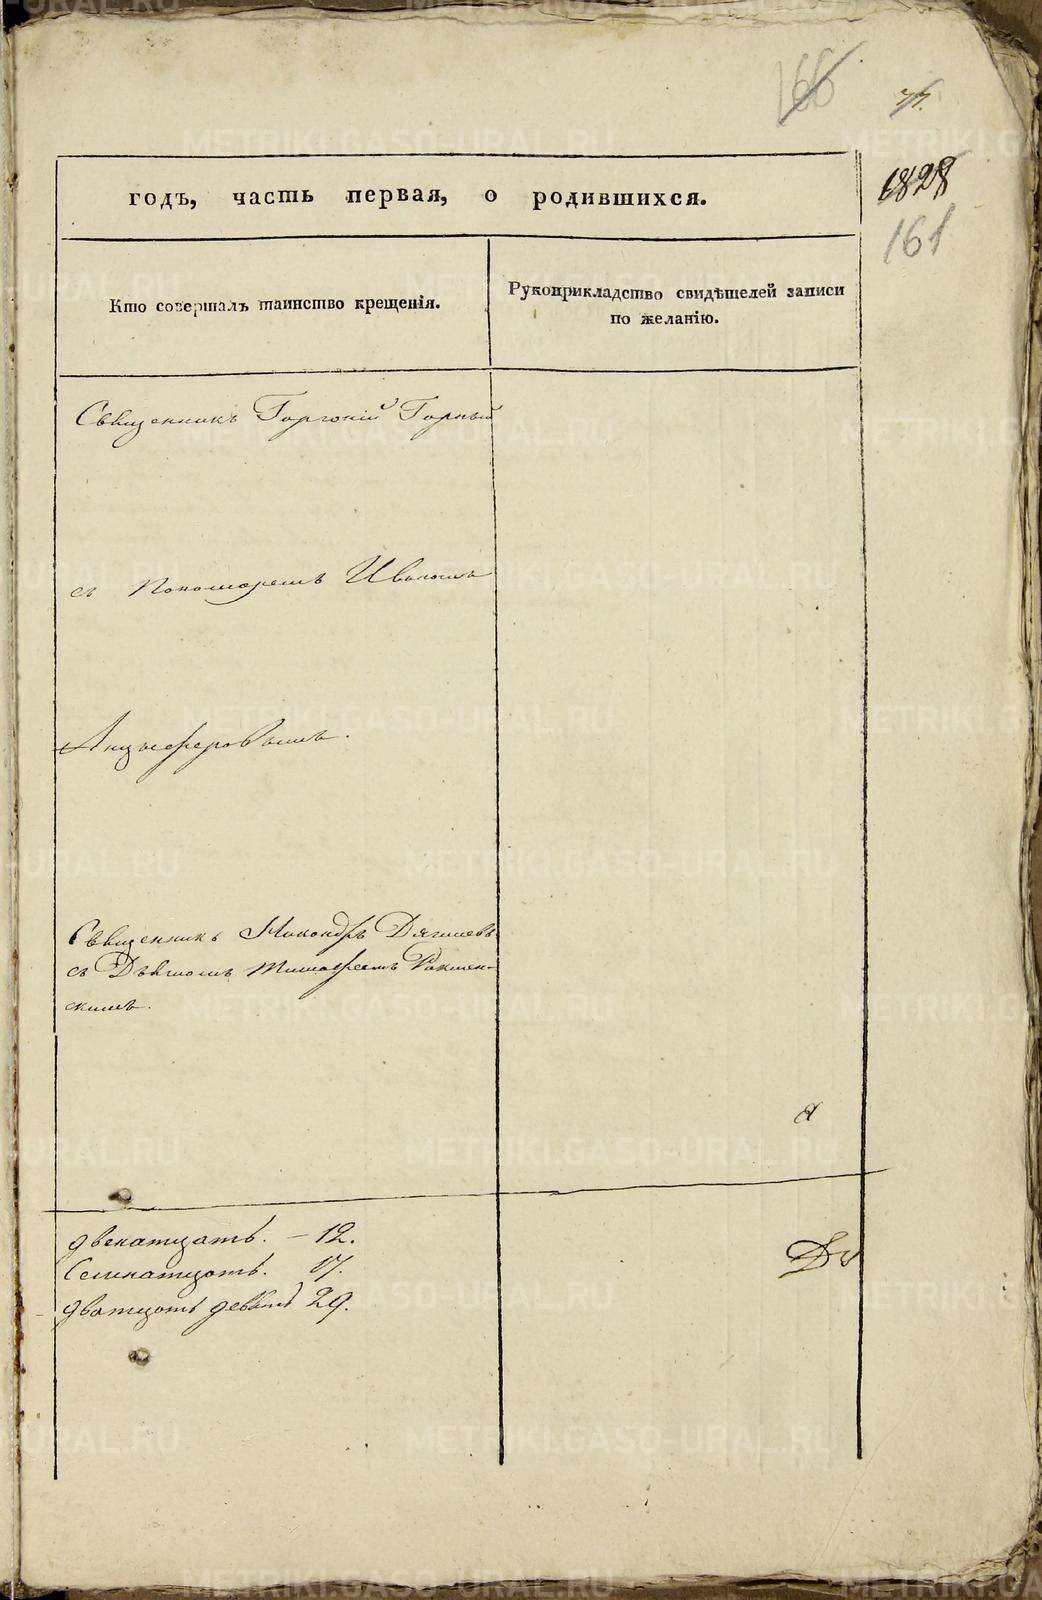 166
77.
годъ, часть первая, о родившихся.
1828
161
Кто совершалъ таинство крещенія.
Рукоприкладство свидѣтелей записи
по желанію.
Священникъ Горгоній Горный
съ Пономаремъ Иваномъ
Анцыферовымъ.
Священникъ Никандръ Дягилевъ
съ Дьячкомъ Тимофеемъ
скимъ.
двенатцать. – 12.
Семнатцать. 17.
дватцать девять 29.
METRIKI.GASO-URAL.RU